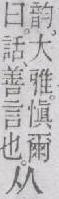 韵。大雅。愼爾
曰。話、善言也。从